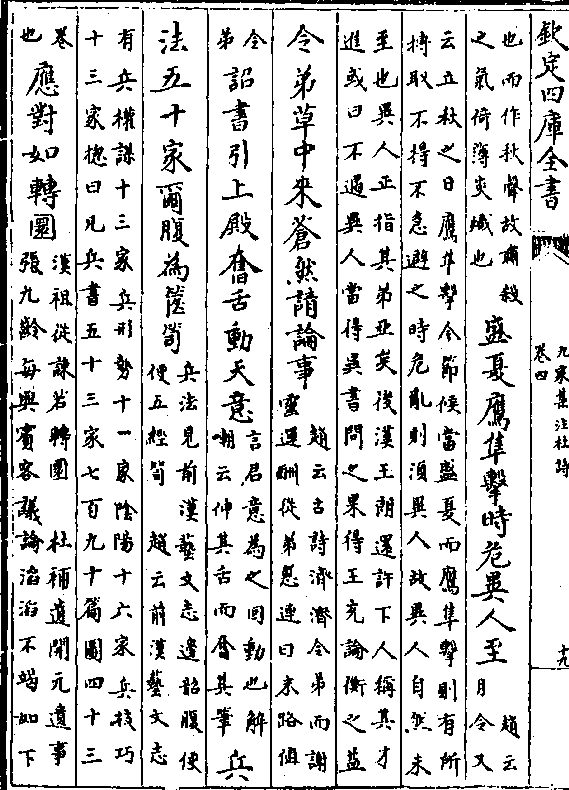 欽定四庫全書
九家集注杜詩
卷四
十九
也而作秋聲故肅殺
之氣倚薄炎熾也
盛夏鷹隼擊時危異人至
趙云
月令又
云立秋之日鷹隼擊今節候當盛夏而鷹隼擊則有所
摶取不得不急避之時危亂則須異人故異人自然未
至也異人正指其弟亞矣後漢王朗還許下人稱其才
進或曰不遇異人當得異書問之果得王充論衡之益
令弟草中來蒼然請論事
趙云古詩濟濟令弟而謝
靈運酬從弟惠連曰末路值
令
弟
詔書引上殿奮舌動天意
言君意為之回動也解
嘲云伸其舌而奮其筆
兵
法五十家爾腹為篋笥
兵法見前漢藝文志邊韶腹便
便五經笥 趙云前漢藝文志
有兵權謀十三家兵形勢十一家陰陽十六家兵技巧
十三家揔曰凡兵書五十三家七百九十篇圖四十三
卷
也
應對如轉圜
漢祖從諫若轉圜 杜補遺開元遺事
張九齡每與賓客議論滔滔不竭如下